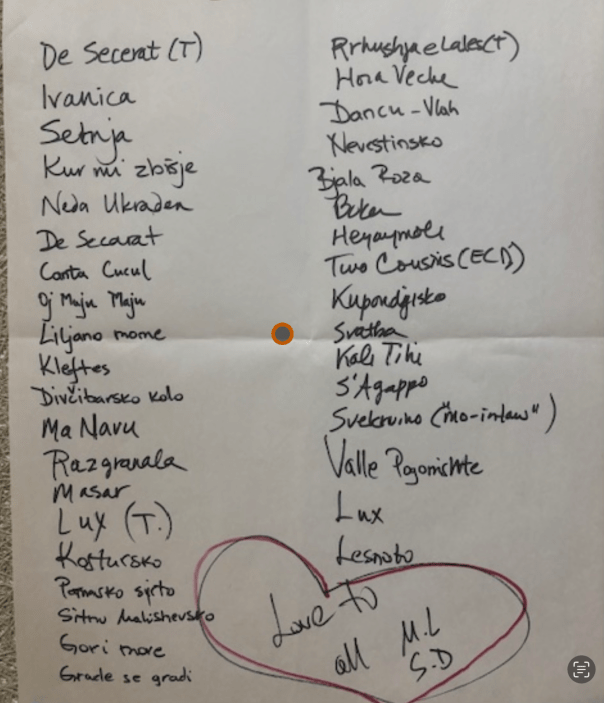 De Secerat (T)
Ivanica
Setnja
Kur mi zbisje
Neda Ukraden
De Secarat
Canta Cucul
Oj Maju Maju
Liljano mome
Kleftes
Divčibarsko kolo
Ma Navu
Razgranala
Masar
Lux (T.)
Kostursko
sjrto
Sitno Malishevsko
Gori more
Grade se gradi
Rrhushja e Lales (T)
Hora Veche
Dancu - Vlah
Nevestinsko
Bjala Roza
Heyaymoli
Two Cousins (ECD)
Svatba
Kali Tihi
S'Agappo
Svekrvino ("mo-inlaw")
Valle Pogonishte
Lux
Lesnoto
Love to
all M.L
S.D